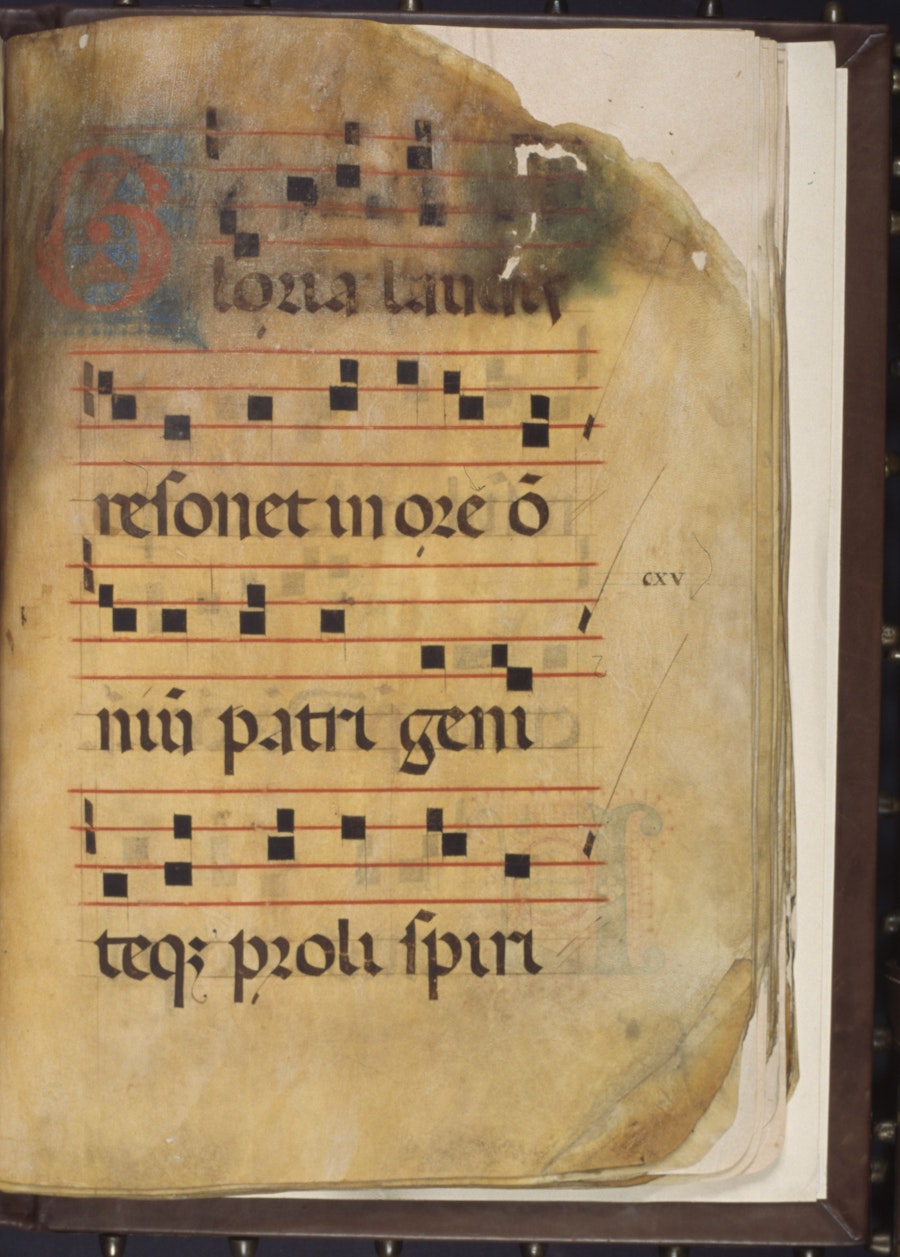 Gloria laudis
resonet in ore õ
niũ patri geni
cxv
teqꝫ proli spiri